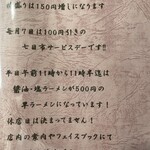 大盛りは150円増しになります
毎月7日は100円引きの
七日家サービスデーです!!
平日午前11時から11時半迄は
醤油・塩ラーメンが500円の
早ラーメンになっています!
休店日は決まってません!
店内の案内やフェイスブックにて